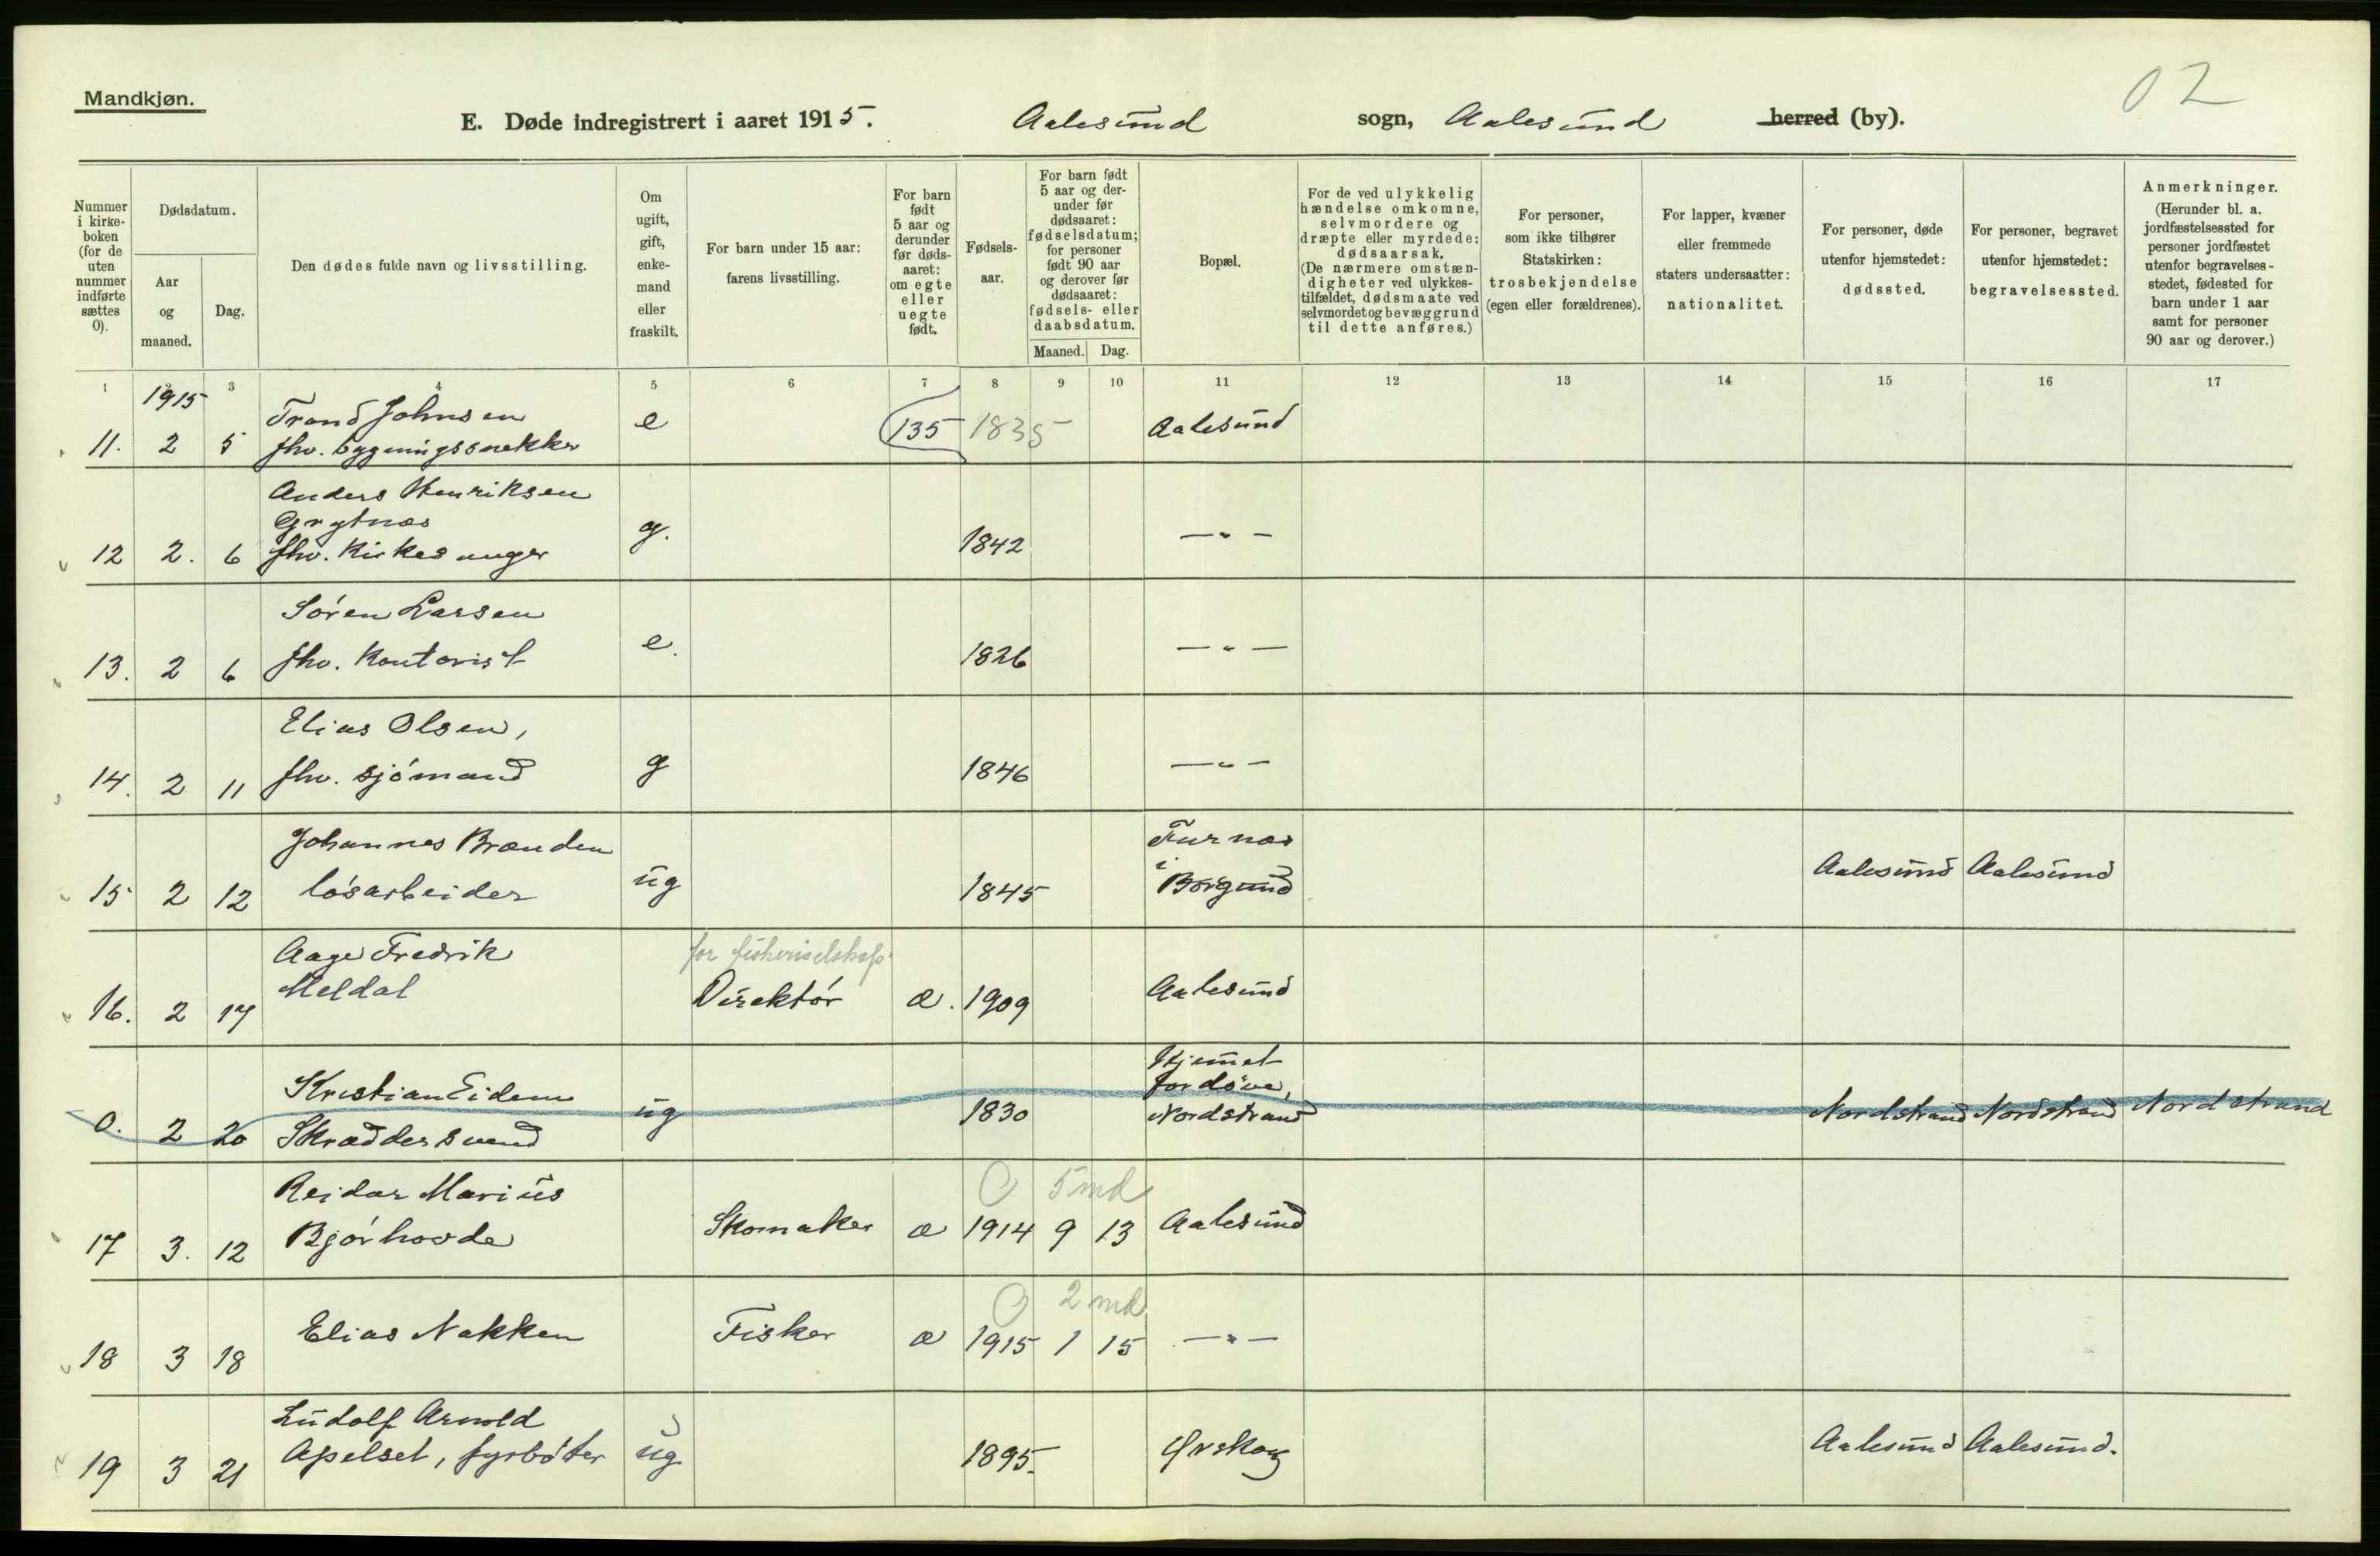 Mandkjøn.
02
E. Døde indregistrert i aaret 1915. Aalesund sogn, Aalesund herred (by).
Nummer i kirke-boken (for de uten nummer indførte sættes 0).
Dødsdatum.
Aar og maaned.
Dag.
Den dødes fulde navn og livsstilling.
Om ugift, gift, enke-mand eller fraskilt.
For barn under 15 aar: farens livsstilling.
For barn født 5 aar og derunder før døds-aaret: om egte eller uegte født.
Fødsels-aar.
For barn født 5 aar og der-under før dødsaaret: fødselsdatum; for personer født 90 aar og derover før dødsaaret: fødsels- eller daabsdatum.
Maaned. Dag.
Bopæl.
For de ved ulykkelig hændelse omkomne, selvmordere og dræpte eller myrdede: dødsaarsak. (De nærmere omstæn-digheter ved ulykkes-tilfældet, dødsmaate ved selvmordet og bevæggrund til dette anføres.)
For personer, som ikke tilhører Statskirken: trosbekjendelse (egen eller forældrenes).
For lapper, kvæner eller fremmede staters undersaatter: nationalitet.
For personer, døde utenfor hjemstedet: dødssted.
For personer, begravet utenfor hjemstedet: begravelsessted.
Anmerkninger. (Herunder bl. a. jordfæstelsessted for personer jordfæstet utenfor begravelses-stedet, fødested for barn under 1 aar samt for personer 90 aar og derover.)
1 2 3 4 5 6 7 8 9 10 11 12 13 14 15 16 17
1915
Trond Johnsen
11. 2 5 fhv. bygningssnekker e 135 1835 Aalesund
Anders Henriksen
Grytnes
12 2. 6 fhv. Kirkesanger g. 1842 — " —
Søren Larsen
13. 2 6 fhv. Kontorist e. 1826 — " —
Elias Olsen,
14. 2 11 fhv. sjømand g 1846 — " —
Johannes Brænden Furnes
i
15 2 12 løsarbeider ug 1845 Borgund Aalesund Aalesund
Aage Fredrik for fiskeriselskap
16. 2 17 Meldal Direktør æ. 1909 Aalesund
Hjemmet
Kristian Eidem for døve,
0. 2 20 Skræddersvend ug 1830 Nordstrand Nordstrand Nordstrand Nordstrand
Reidar Marius 0 5 md
17 3. 12 Bjørhovde Skomaker æ 1914 9 13 Aalesund
0 2 md
18 3 18 Elias Nakken Fisker æ 1915 1 15 — " —
Ludolf Arnold
19 3 21 Apelset, fyrbøter ug 1895. Ørskog Aalesund Aalesund.